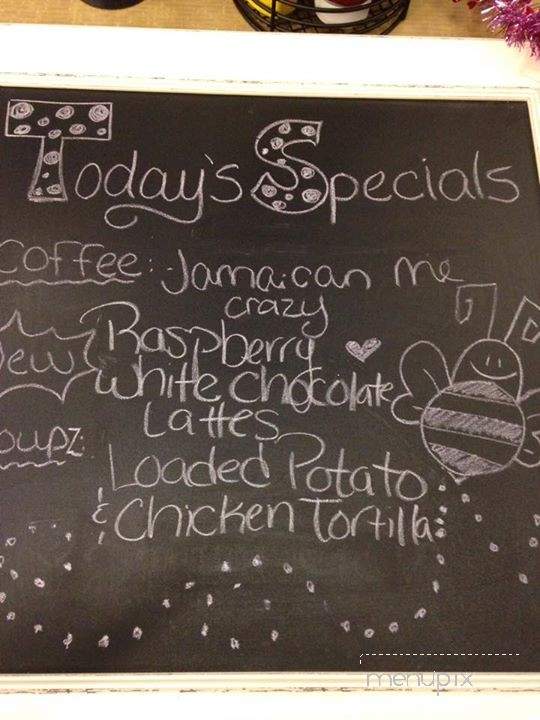 Today's Specials
Coffee: Jamaican me
crazy
New Raspberry
White chocolate
Lattes
Soupz:
Loaded Potato
& Chicken Tortilla
menupix